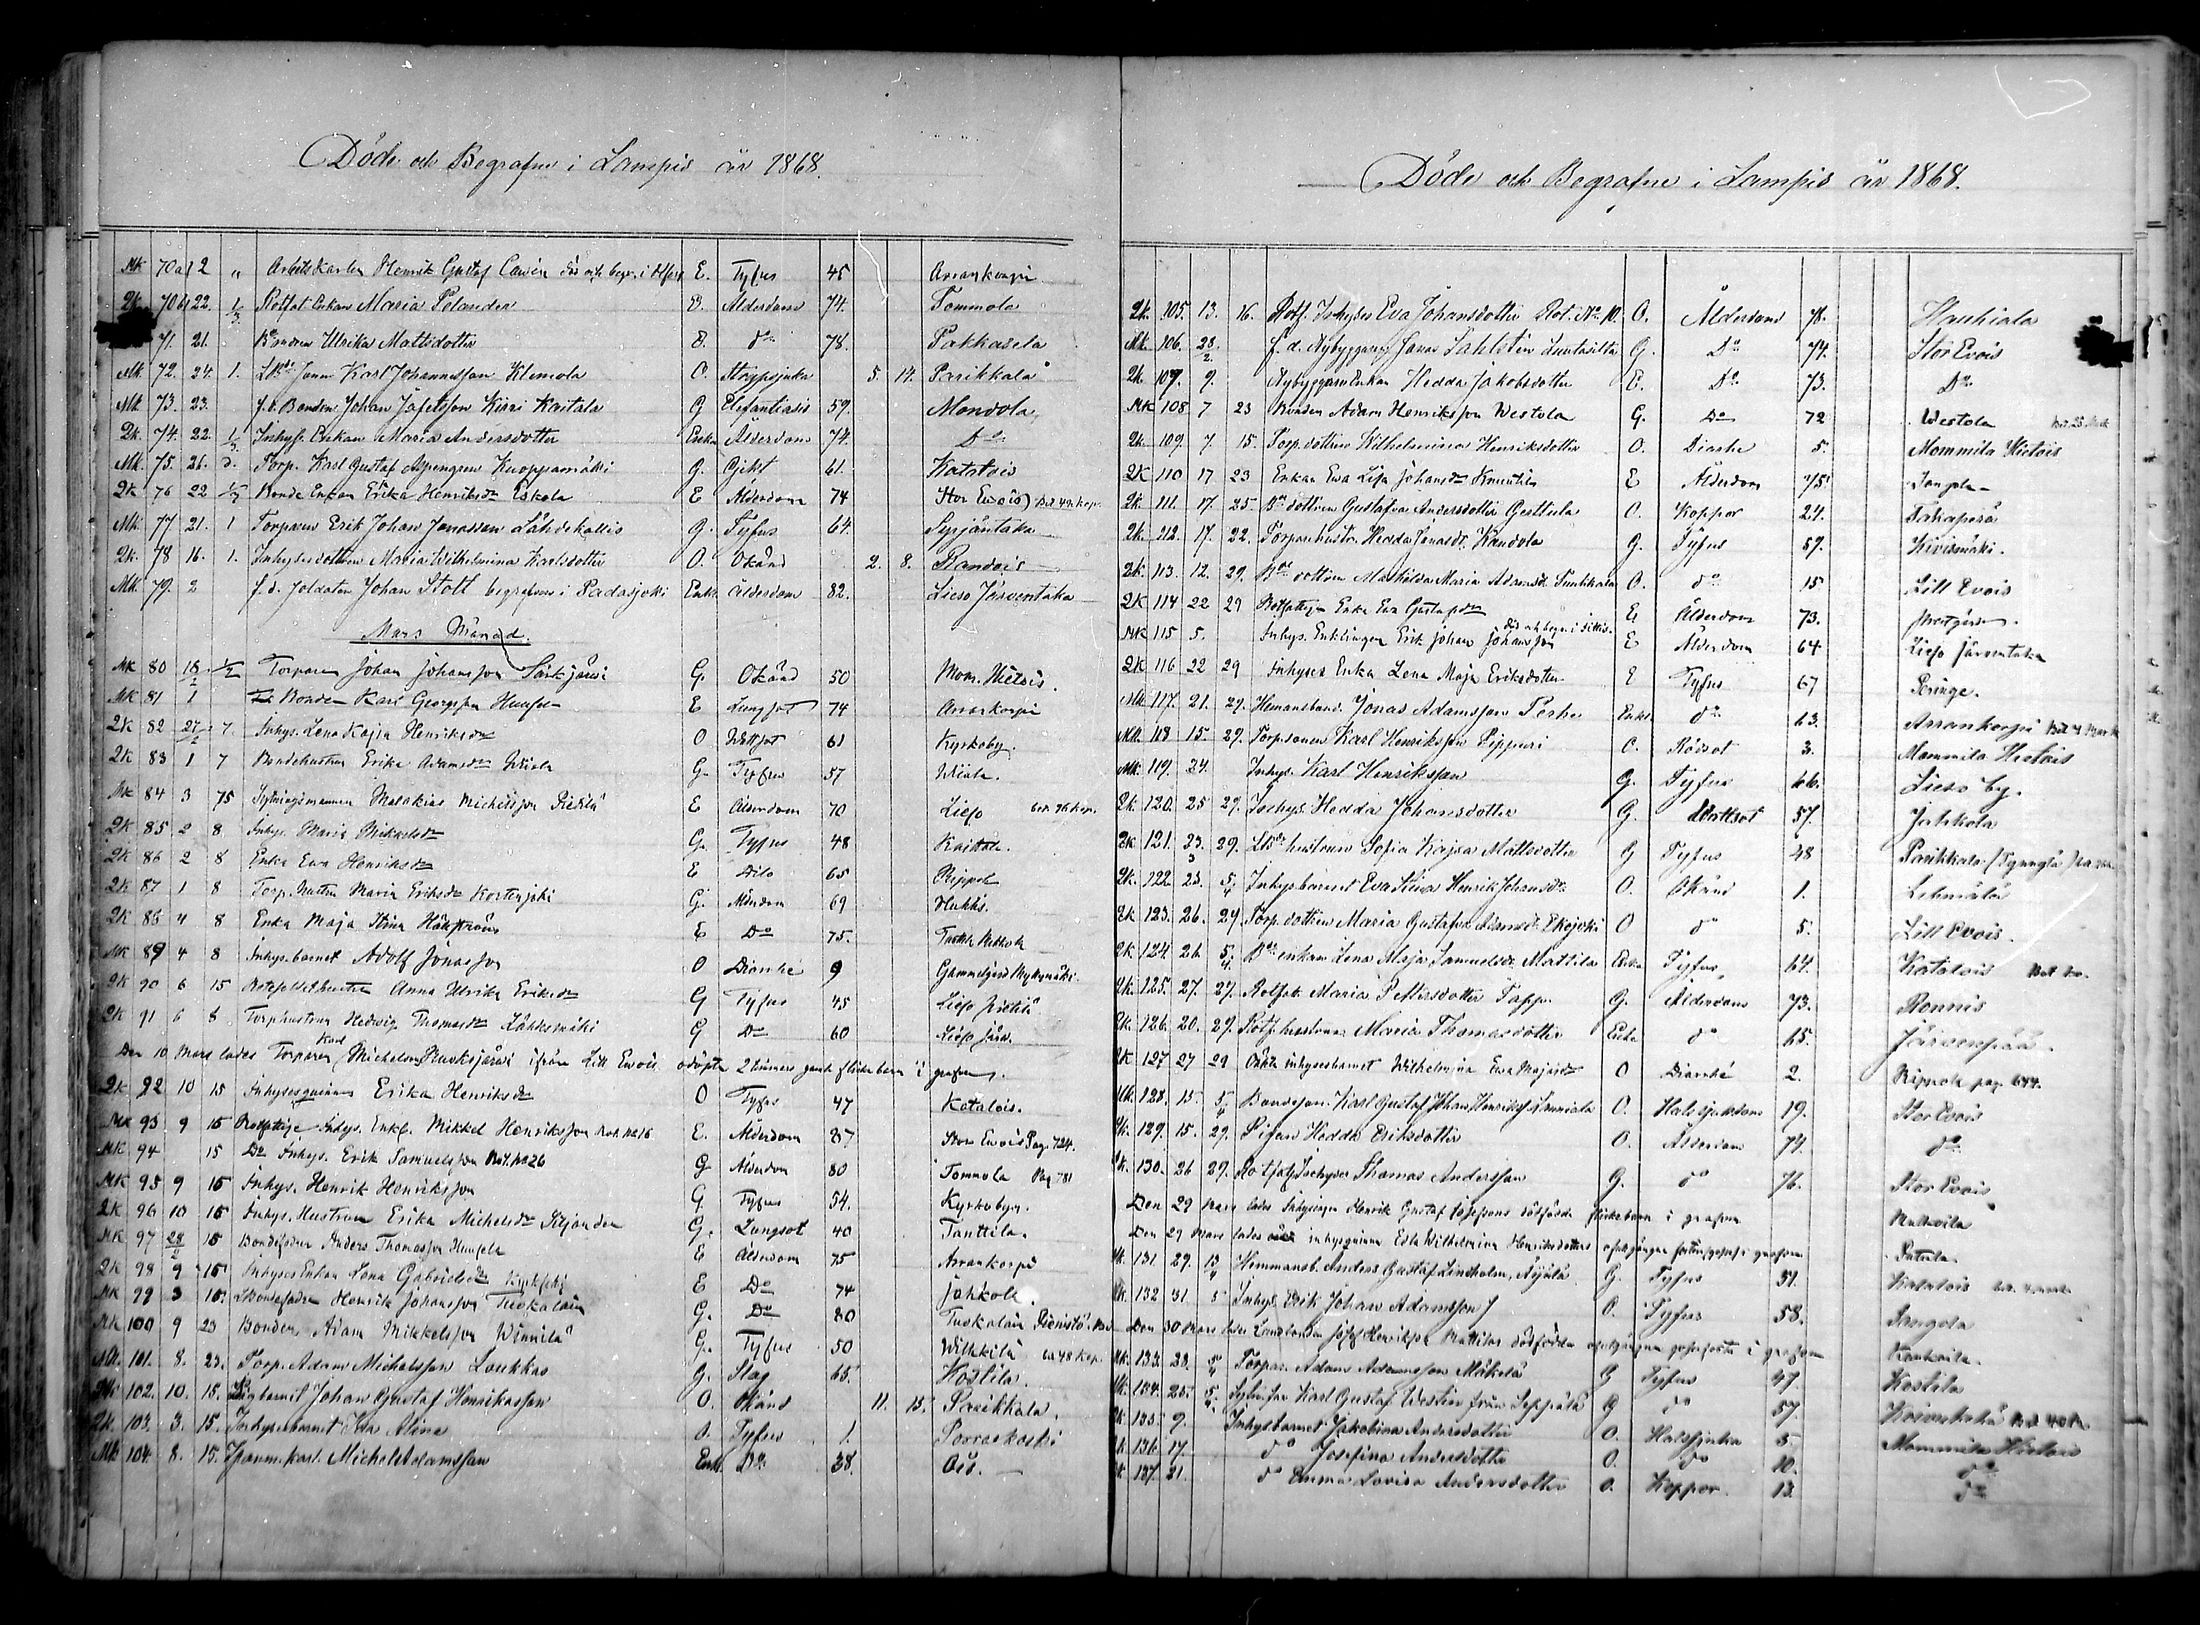 Döde och Begrafne i Lampis år 1868.
Mk 70a 12 " Arbets Karlen Henrik Gustaf död och begr. i E. Tyfus 45 Arrankorpi
Qk. 70b 22. 1/3. Rotfat. Enkan Maria Polander E. Ålderdom 74. Tommola
71. 21. Bondeenkan Ulrika Mattsdotter E. do 78. Pakkasela
Mk. 72. 24. 1. Karl Johannesson Klemola O. Strypsjuka 5. 14. Parikkala
Mk. 73. 23. f.d. Bonden Johan Jafetsson Kissi Kaitala G Elefantiasis 59. Mondola
Qk. 74. 22. 1/3 Inhys. Enkan Maria Andersdotter Enka Ålderdom 74. Do
Mk. 75. 26. 3. Torp. Karl Gustaf Aspengren Knopparmäki G. Gikt 61. Katalois
Qk 76 22 1/3 Bonde Enkan Erika Henriksdr Eskola E Ålderdom 74 Stor Ewois
Mk. 77 21. 1 Torparen Erik Johan Jonasson Lähdekallio G. Tyfus 64. Syrjäntaka
Qk. 78 16. 1. Inhysesdottren Maria Wilhelmina Karlsdotter O. Okänd 2. 8. Ronnois
Mk. 79. 2 f.d. Soldaten Johan Stolt begrafven i Padasjoki Enkl. Ålderdom 82. Lieso Järventaka
Mars Månad.
Mk 80 18/2 1/2 Torparen Johan Johansson Särkjärvi G. Okänd 50 Mom. Hietois.
Mk 81 1 Bonden Karl Georgsson E Lungsot 74 Arrankorpi
Qk 82 27/2 7. Inhys. Lena Kajsa Henriksdr O Wattsot 61 Kyrkoby.
Qk 83 1 7 Bondehustrun Erika Adamsdr Wiala G. Tyfus 57 Wiala.
Mk 84 3 15 Sytningsmannen Malakias Michelsson Pietilä E Ålderdom 70 Lieso
Qk 85 2 8. Inhys. Maria Mikkelsdr G. Tyfus 48 Kaitala.
Qk 86 2 8 Enka Ewa Henriksdr E Dito 65 Rippola
Qk 87 1 8 Torp. hustru Maria Eriksdr G. Ålderdom 69
Qk 88 4 8 Enka Maja Stina E Do 75.
Mk 89 4 8 Inhys. barnet Adolf Jonasson O Diarrhé 9
Qk 90 6 15 Anna Ulrika Eriksdr G Tyfus 45 Lieso Pietilä
Qk 91 6 8 Torphustrun Hedwig Thomasdr Lähksmäki G Do 60
Den 10 Mars lades Torparen Karl Michelsson Ruuksjärvi ifrån Lill Ewois odöpta 2 timmars gamla flickebarn i grafven.
Qk 92 10 15 Inhysesqvinnan Erika Henriksdr O Tyfus 47 Katalois.
Mk 93 9 15 Rotfattige Inhys. Enkl. Mikkel Henriksson Rot. No 16 E. Ålderdom 87 Stor Ewois Pag. 724.
Mk 94 15 Do Inhys. Erik Samuelsson Rot. No 26 G Ålderdom 80 Tommola Pag 781
Mk 95 9 15 Inhys. Henrik Henriksson G. Tyfus 54. Kyrkobyn.
Qk 96 10 15 Inhys. Hustrun Erika Michelsdr Siljander G. Lungsot 40 Tanttila.
Mk 97 28/2 15 Bondefadren Anders Thomasson E Ålderdom 75 Arrankorpi
Qk 98 9 15 Inhyses Enkan Lena Gabrielsdr E Do 74 Jahkola
Mk 99 3 15. Henrik Johansson Tuokalain G. Do 80 Tuokalain
Mk 100 9 23 Bonden Adam Mikkelsson Winnilä G. Tyfus 50 Wilhkilä
Mk. 101. 8. 23. Torp. Adam Michelsson Loukkas G. Slag 65. Hostila.
Mk 102. 10. 15. barnet Johan Gustaf Henriksson O. Okänd 11. 15. Parikkala.
Qk. 103. 3. 15. Inhysesbarnet Eva Alina O. Tyfus 1. Porraskoski
Mk 104. 8. 15. Spanm. karl. Michel Adamsson Enk. Do 38.
Döde och Begrafne i Lampis år 1868.
Qk. 105. 13. 16. Rotf. Inhyses Eva Johansdotter Rot. No 10. O. Ålderdom 78. Hauhiala
Mk. 106. 28/2. f.d. Nybyggaren Jonas Dahlsten G. Do 74. Stor Evois
Qk. 107. 9. Nybyggare Enkan Hedda Jakobsdotter E. Do 73. Do
Mk 108 7 23 Bonden Adam Henriksson Westola G. Do 72 Westola
Qk. 109. 7. 15. Torp. dottren Wilhelmina Henriksdotter O. Diarhe 5. Mommila Hietois
Qk 110 17 23 Enkan Ewa Lisa Johansdr E Ålderdom 75. Jangola
Qk. 111. 17. 25. dottren Gustafva Andersdotter Gerttula O. Koppor 24.
Qk. 112. 17. 22. Torparehustr. Hedda Jonasdr. G. Tyfus 59. Kivismäki.
Qk. 113. 12. 29. dottren Mathilda Maria Adamsdr O. do 15. Lill Evois
Qk 114 22 29 Rotfattiga Enka Eva Gustafsdr E Ålderdom 73.
Mk 115 5. Inhys. Enklingen Erik Johan Johansson död och begr. i E Ålderdom 64 Lieso Järventaka
Qk 116 22 29 Inhyses Enka Lena Maja Eriksdotter E Tyfus 67 Peringe.
Mk. 117. 21. 29. Hemansbond. Jonas Adamsson Enkl. do 63. Arrankorpi
Mk. 118 15. 29. Torp. sonen Karl Henriksson Pippuri O. Rödsot 3. Mommila Hietois
Mk. 119. 24. Inhys. Karl Henriksson G. Tyfus 66. Lieso by.
Qk. 120. 25 29. Inhys. Hedda Johansdotter G. Wattsot 57. Jahkola
Qk. 121. 23. 29. hustrun Sofia Kajsa Mattsdotter G Tyfus 48 Parikkala
Qk. 122 23. 5/4 Inhysbarnet Eva Stina Henrik Johansdr. O. Okänd 1.
Qk. 123. 26. 29 Torp. dottren Maria Gustafva Adamsdr Ekojoki O do 5. Lill Evois.
Qk. 124. 26 5/4 enkan Lena Maja Samuelsdr Mattila Enka Tyfus 64. Katalois
Qk. 125. 27. 29. Rotfat. Maria Pettersdotter G. Ålderdom 73. Ronnis
Qk. 126. 20. 29. Rotf. hustrun Maria Thomasdotter Enka do 65. Järvenpää.
Qk 127 27 29 Oäkta inhysesbarnet Wilhelmina Ewa Majasdr O Diarrhé 2. Rippola pag. 644.
Mk. 128. 15. 5/4 Bondeson. Karl Gustaf Johan Henriksson O. Halssjukdom 19. Stor Evois
Qk. 129. 15. 29. Pigan Hedda Eriksdotter O. Ålderdom 74. do
130. 26 29. Rotfat. Inhyses Thomas Andersson G. do 76. Stor Evois
Den 29 Mars lades Inhysingen Henrik Gustaf Josefssons dödfödda flickebarn i grafven
Den 29 Mars lades inhysqvinnan Edla Wilhelmina Henriksdotters i grafven
Mk. 131. 29. 13/4 Hemmansb. Anders Gustaf Lindholm, Äijälä G. Tyfus 51. Katalois
132 31. 5 Inhys. Erik Johan Adamsson O. Tyfus 58. Jangola
Den 30 Mars lades Josef Henriksson Mattilas dödfödda i grafven
Mk. 133. 23. 5/4 Torpar. Adam Adamsson Mäkelä G Tyfus 47. Kostila
Mk. 134. 25. 5/4. Karl Gustaf Westin från Seppälä G do 57.
135. 9. Inhysbarnet Jakobina Andersdotter O. Halssjuka 5. Mommila Hietois
136. 17. do Josefina Andersdotter O. do 10. do
137 21. do Emma Lovisa Andersdotter O. Koppor 13. do